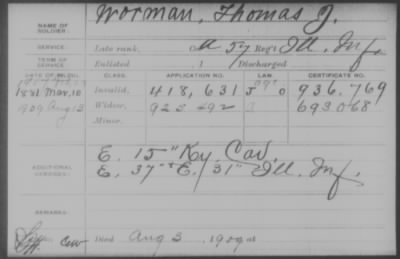 NAME OF SOLDIER: Worman, Thomas J.
SERVICE: Late rank, Co. A 57 Reg't Ill. Inf.
TERM OF SERVICE: Enlisted 1 Discharged
DATE OF FILING. CLASS. APPLICATION NO. LAW. CERTIFICATE NO.
1881 Mar. 10 Invalid, 418,631 936.769
1909 Aug 13 Widow, 925 492 693068
Minor,
ADDITIONAL SERVICES: E. 15" Ky. Cav.
E. 37" + E/31" Ill. Inf.
REMARKS:
Died Aug 3 1909 at